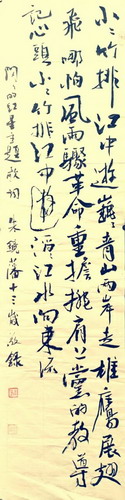 小小竹排江中游巍巍青山两岸走雄鹰展翅
飞哪怕风雨骤革命重担挑肩上党的教导
记心头小小竹排江中游滔滔江水向东流
闪闪的红星主题歌词 朱
十三岁敬录